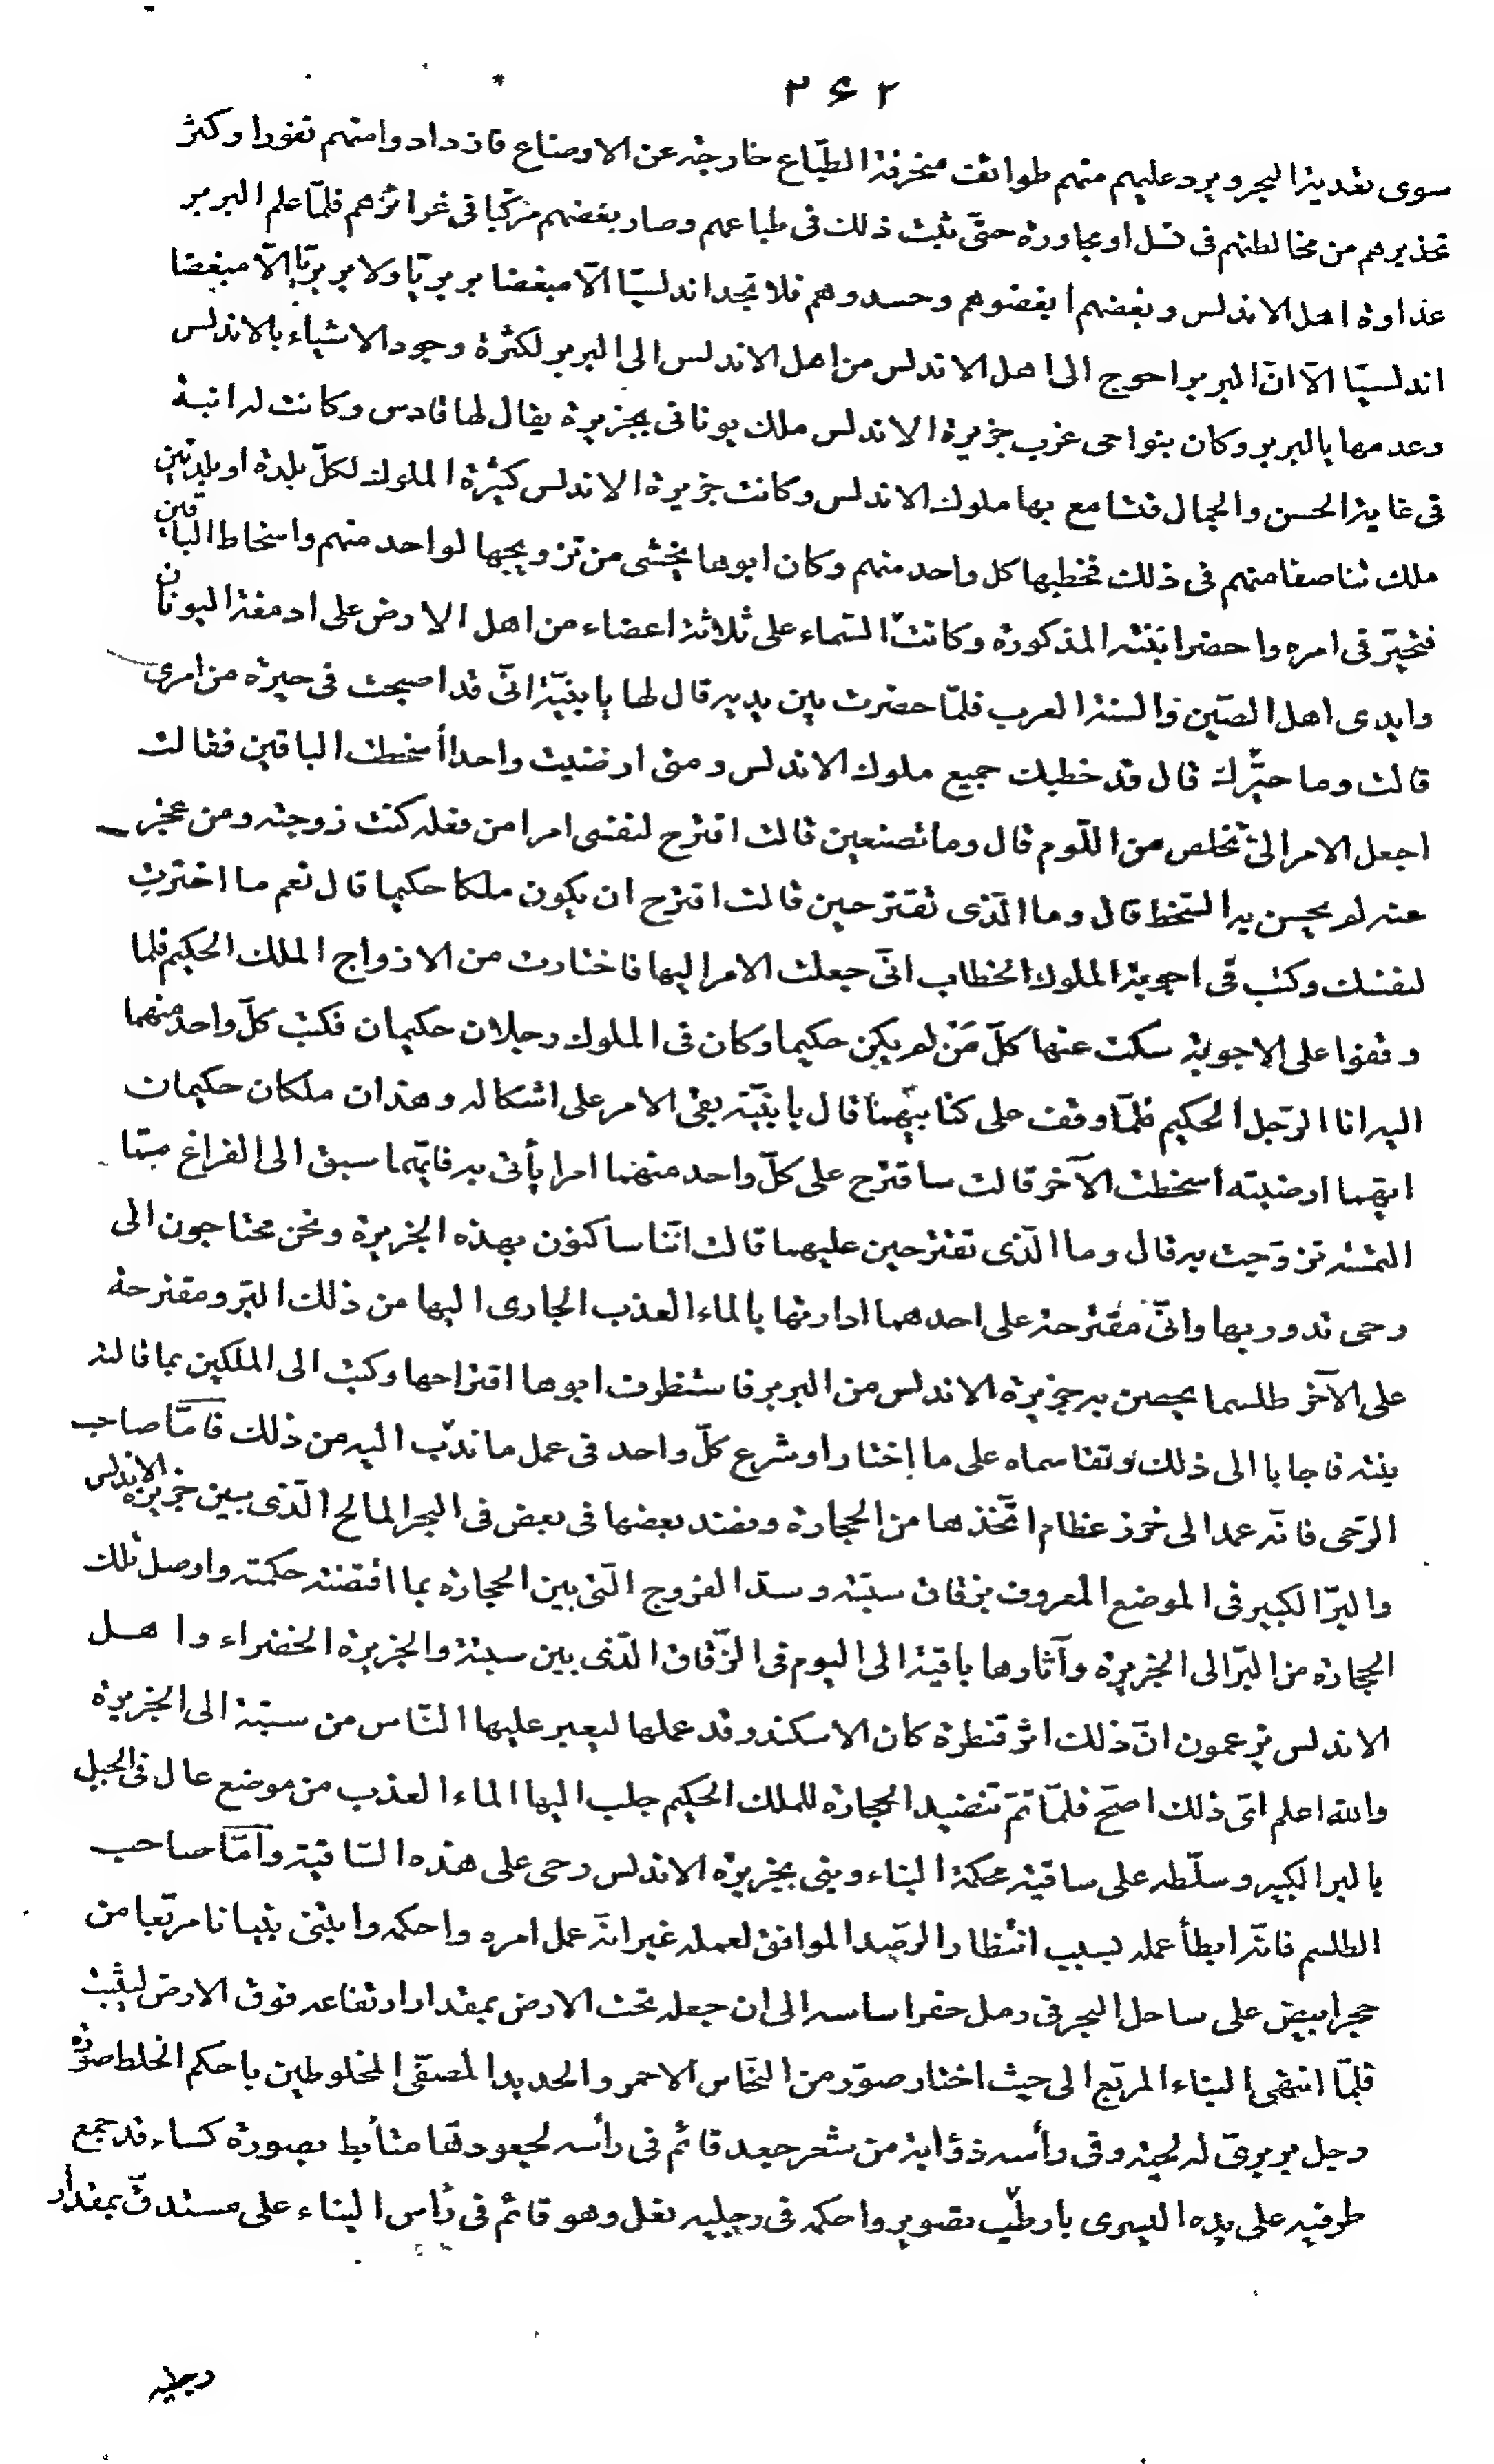 ۲۶۲
سوى تعدية البحر ويرد عليهم منهم طوائف منحرفة الطباع خارجة عن الاوضاع فازدادوا منهم نفورا وكثر
تحذيرهم من مخالطتهم فى نسل او مجاورة حتّى ثبت ذلك فى طباعهم وصار بغضهم مركّبا فى غرائزهم فلمّا علم البربر
عداوة اهل الاندلس وبغضهم ابغضوهم وحسدوهم فلا تجد اندلسيّا الّا مبغضا بربريّا ولا بربريّا الّا مبغضا
اندلسيّا الّا انّ البربر احوج الى اهل الاندلس من اهل الاندلس الى البربر لكثرة وجود الاشياء بالاندلس
وعدمها بالبربر وكان بنواحى غرب جزيرة الاندلس ملك يونانى بجزيرة يقال لها قادس وكانت له ابنة
فى غاية الحسن والجمال فتسامع بها ملوك الاندلس وكانت جزيرة الاندلس كثيرة الملوك لكلّ بلدة او بلدتين
ملك تناصفا منهم فى ذلك فخطبها كل واحد منهم وكان ابوها يخشى من تزويجها لواحد منهم واسخاط الباقين
فتحيّر فى امره واحضر ابنته المذكورة وكانت السّماء على ثلاثة اعضاء من اهل الارض على ادمغة اليونان
وايدى اهل الصّين والسنة العرب فلمّا حضرت بين يديه قال لها يا بنيّة انّى قد اصبحت فى حيرة من امرى
قالت وما حيّرك قال قد خطبك جميع ملوك الاندلس ومتى ارضيت واحدا أسخطت الباقين فقالت
اجعل الامر الىّ تخلص من اللّوم قال وما تصنعين قالت اقترح لنفسى امرا من فعله كنت زوجته ومن عجز
عنه لم يحسن به السّخط قال وما الّذى تقترحين قالت اقترح ان يكون ملكا حكيما قال نعم ما اخترتِ
لنفسك وكتب فى اجوبة الملوك الخطاب انّى جعلت الامر اليها فاختارت من الازواج الملك الحكيم فلما
وقفوا على الاجوبة سكت عنها كلّ مَنْ لم يكن حكيما وكان فى الملوك رجلان حكيمان فكتب كلّ واحد منهما
اليه انا الرّجل الحكيم فلمّا وقف على كتابيهما قال يا بنيّة بقى الامر على اشكاله وهذان ملكان حكيمان
ايّهما ارضيته أسخطت الآخر قالت ساقترح على كلّ واحد منهما امرا يأتى به فايّهما سبق الى الفراغ ممّا
التمسته تزوّجت به قال وما الّذى تقترحين عليهما قالت انّنا ساكنون بهذه الجزيرة ونحن محتاجون الى
رحى تدور بها وانّى مقترحة على احدهما ادارتها بالماء العذب الجارى اليها من ذلك البرّ ومقترحة
على الآخر طلسما يحصن به جزيرة الاندلس من البربر فاستظرف ابوها اقتراحها وكتب الى الملكين بما قالته
بنته فاجابا الى ذلك وتقاسماه على ما اختارا وشرع كلّ واحد فى عمل ما ندب اليه من ذلك فامّا صاحب
الرّحى فانّه عمد الى خرز عظام اتّخذها من الحجارة ونضد بعضها فى بعض فى البحر المالح الّذى بين جزيرة الاندلس
والبرّ الكبير فى الموضع المعروف بزقاق سبتة وسدّ الفروج الّتى بين الحجارة بما اقتضته حكمته واوصل تلك
الحجارة من البرّ الى الجزيرة وآثارها باقية الى اليوم فى الزّقاق الّذى بين سبتة والجزيرة الخضراء واهل
الاندلس يزعمون انّ ذلك اثر قنطرة كان الاسكندر قد عملها ليعبر عليها النّاس من سبتة الى الجزيرة
والله اعلم اىّ ذلك اصحّ فلمّا تمّ تنضيد الحجارة للملك الحكيم جلب اليها الماء العذب من موضع عال فى الجبل
بالبر الكبير وسلّطه على ساقية محكمة البناء وبنى بجزيرة الاندلس رحى على هذه السّاقية وأمّا صاحب
الطلسم فانّه ابطأ عمله بسبب انتظار الرصد الموافق لعمله غير انّه عمل امره واحكمه وابتنى بنيانا مربّعا من
حجر ابيض على ساحل البحر فى رمل حفر اساسه الى ان جعله تحت الارض بمقدار ارتفاعه فوق الارض ليثبت
فلمّا انتهى البناء المربّع الى حيث اختار صوّر من النّحاس الاحمر والحديد المصفّى المخلوطين باحكم الخلط صورة
رجل بربرىّ له لحية وفى رأسه ذؤابة من شعر جعد قائم فى رأسه لجعودتها متأبط بصورة كساء قد جمع
طرفيه على يده اليسرى بارطب تصوير واحكمه فى رجليه نعل وهو قائم فى رأس البناء على مستدقّ بمقدار
رجليه